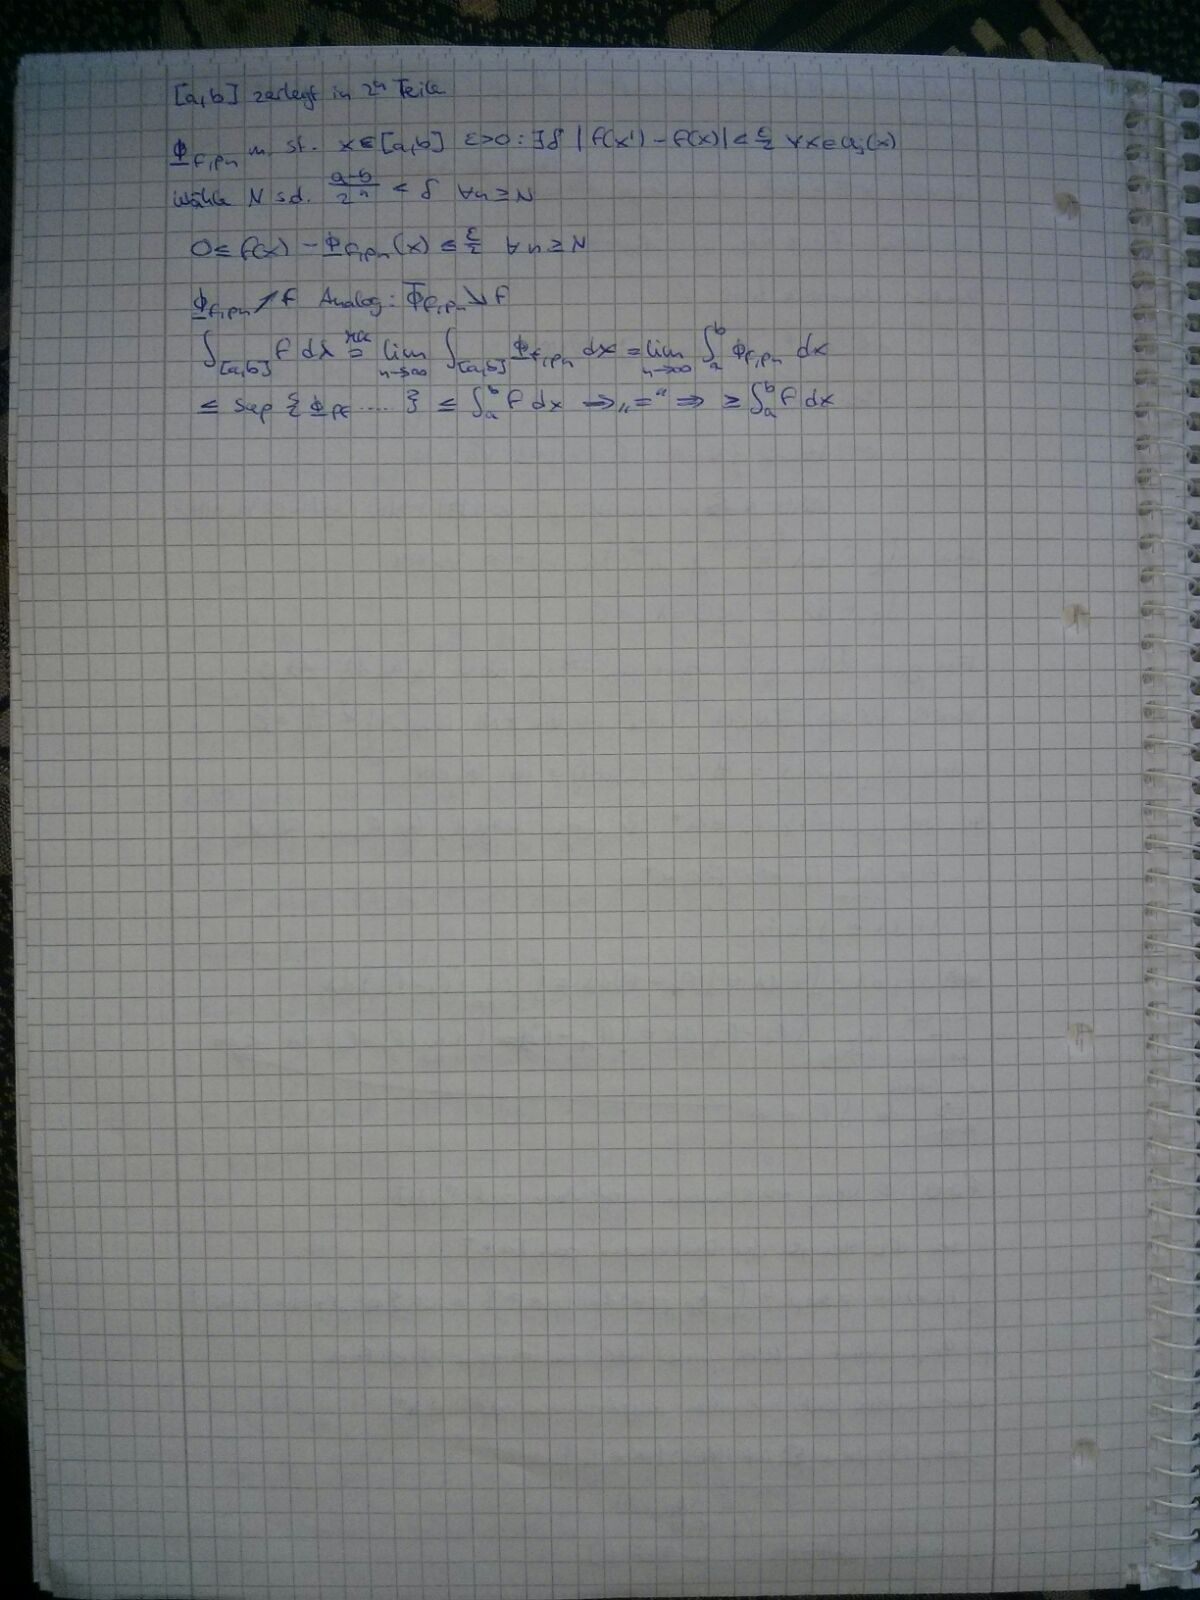 [a,b] zerlegt in 2ⁿ Teile
Φ_{f,pn} m. st. x∈[a,b] ε>0: ∃δ |f(x') - f(x)| < ε/2 ∀x∈Q_j(x)
Wähle N sd. (a-b)/2ⁿ < δ ∀n≥N
0 ≤ f(x) - Φ_{f,pn}(x) ≤ ε/2 ∀n≥N
Φ_{f,pn} ↗ f Analog: Φ̅_{f,pn} ↘ f
∫_{[a,b]} f dλ = lim_{n→∞} ∫_{[a,b]} Φ_{f,pn} dx = lim_{n→∞} ∫_a^b Φ_{f,pn} dx
≤ Sup { Φ_{pf} ..... } ≤ ∫_a^b f dx ⇒ „=“ ⇒ ≥ ∫_a^b f dx